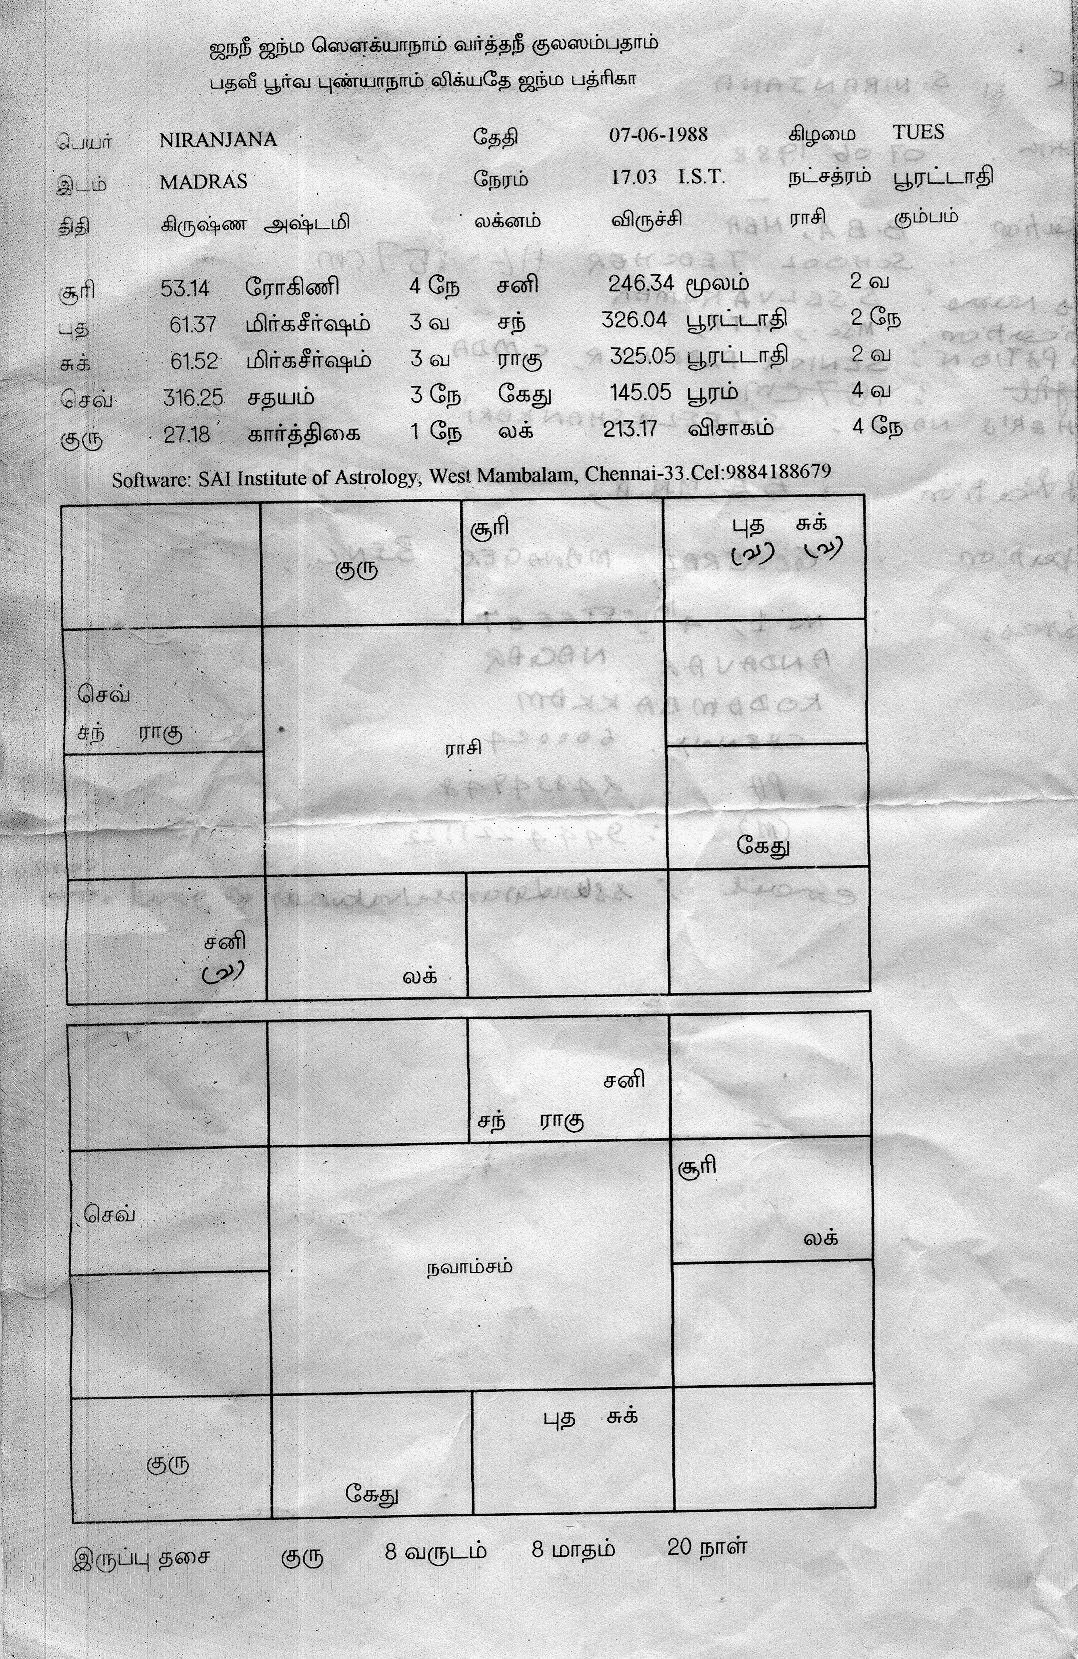 ஜநநீ ஜந்ம ஸௌக்யாநாம் வர்த்தநீ குலஸம்பதாம்
பதவீ பூர்வ புண்யாநாம் லிக்யதே ஜந்ம பத்ரிகா
பெயர் NIRANJANA தேதி 07-06-1988 கிழமை TUES
இடம் MADRAS நேரம் 17.03 I.S.T. நட்சத்ரம் பூரட்டாதி
திதி கிருஷ்ண அஷ்டமி லக்னம் விருச்சி ராசி கும்பம்
சூரி 53.14 ரோகிணி 4 நே சனி 246.34 மூலம் 2 வ
புத 61.37 மிர்கசீர்ஷம் 3 வ சந் 326.04 பூரட்டாதி 2 நே
சுக் 61.52 மிர்கசீர்ஷம் 3 வ ராகு 325.05 பூரட்டாதி 2 வ
செவ் 316.25 சதயம் 3 நே கேது 145.05 பூரம் 4 வ
குரு 27.18 கார்த்திகை 1 நே லக் 213.17 விசாகம் 4 நே
Software: SAI Institute of Astrology, West Mambalam, Chennai-33.Cel:9884188679
குரு சூரி புத சுக்
(வ) (வ)
செவ்
சந் ராகு
ராசி
கேது
சனி
(வ)
லக்
சனி
சந் ராகு
செவ்
சூரி
லக்
நவாம்சம்
புத சுக்
குரு
கேது
இருப்பு தசை குரு 8 வருடம் 8 மாதம் 20 நாள்